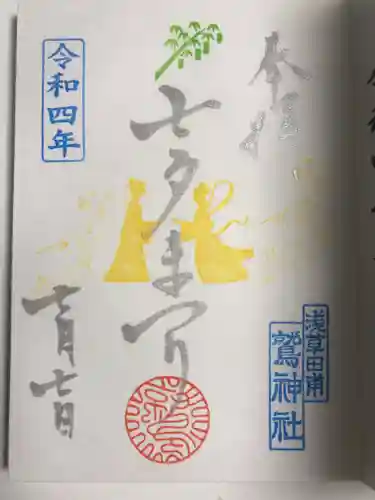 奉拝
七夕まつり
令和四年
七月七日
浅草田甫
鷲神社